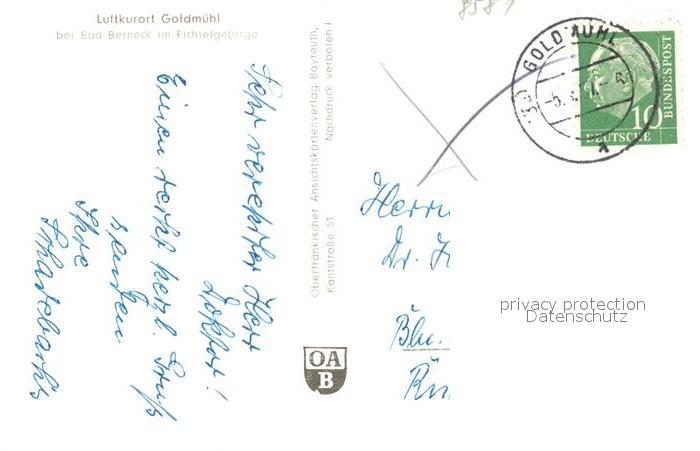 Luftkurort Goldmühl
bei Bad Berneck im Fichtelgebirge
8581
Sehr verehrter Herr
Doktor!
Einen recht herzl. Gruß
senden
Ihre
Oberfränkischer Ansichtskartenverlag Bayreuth,
Kantstraße 51 Nachdruck verboten!
OA
B
GOLDMÜHL
10
DEUTSCHE
BUNDESPOST
Herrn
Dr.
Bln.
privacy protection
Datenschutz